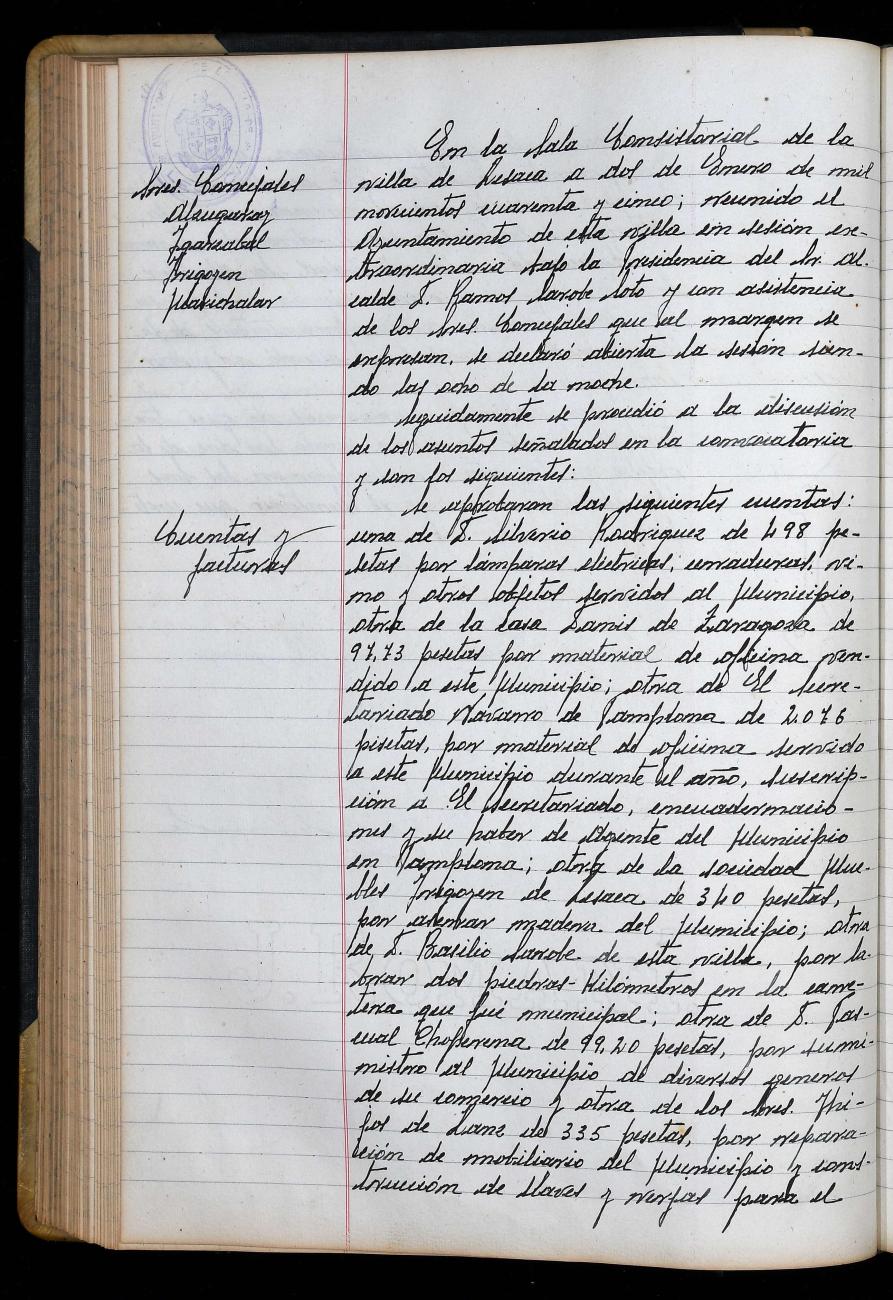 Sres. Concejales
Alzuguray
Igarzabal
Irigoyen
Marichalar
En la Sala Consistorial de la
villa de Lesaca a dos de Enero de mil
novecientos cuarenta y cinco; reunido el
Ayuntamiento de esta villa en sesión ex-
traordinaria bajo la Presidencia del Sr. Al-
calde D. Ramos Larobe Soto y con asistencia
de los Sres. Concejales que al margen se
expresan, se declaró abierta la sesión sien-
do las ocho de la noche.
Seguidamente se procedió a la discusión
de los asuntos señalados en la convocatoria
y son los siguientes:
Cuentas y
facturas
Se aprobaron las siguientes cuentas:
una de D. Silverio Rodriguez de 498 pe-
setas por lámparas eléctricas, cerraduras, vi-
no y otros objetos servidos al Municipio,
otra de la casa Sanis de Zaragoza de
97,73 pesetas por material de oficina ven-
dido a este Municipio; otra de El Secre-
tariado Návarro de Pamplona de 2.076
pesetas, por material de oficina servido
a este Municipio durante el año, suscrip-
ción a El Secretariado, encuadernacio-
nes y su haber de Agente del Municipio
en Pamplona; otra de la sociedad Mue-
bles Irigoyen de Lesaca de 340 pesetas,
por aserrar madera del Municipio; otra
de D. Basilio Larobe de esta villa, por la-
brar dos piedras-Kilómetros en la carre-
tera que fué municipal; otra de D. Pas-
cual Choperena de 99,20 pesetas, por sumi-
nistro al Municipio de diversos generos
de su comercio y otra de los Sres. Hi-
jos de Lanz de 335 pesetas, por repara-
ción de mobiliario del Municipio y cons-
trucción de llaves y verjas para el